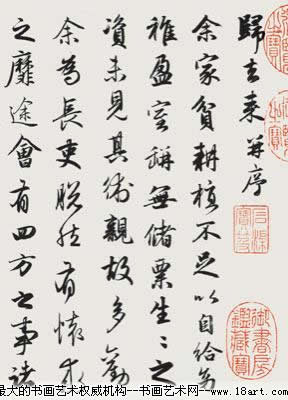 歸去来并序
余家貧耕植不足以自給幼
稚盈室缾無儲粟生〻之
資未見其術親故多勸
余為長吏脱然有懷求
之靡途會有四方之事諸
石渠寶笈
御書房鑑藏寶
最大的书画艺术权威机构--书画艺术网--www.18art.com